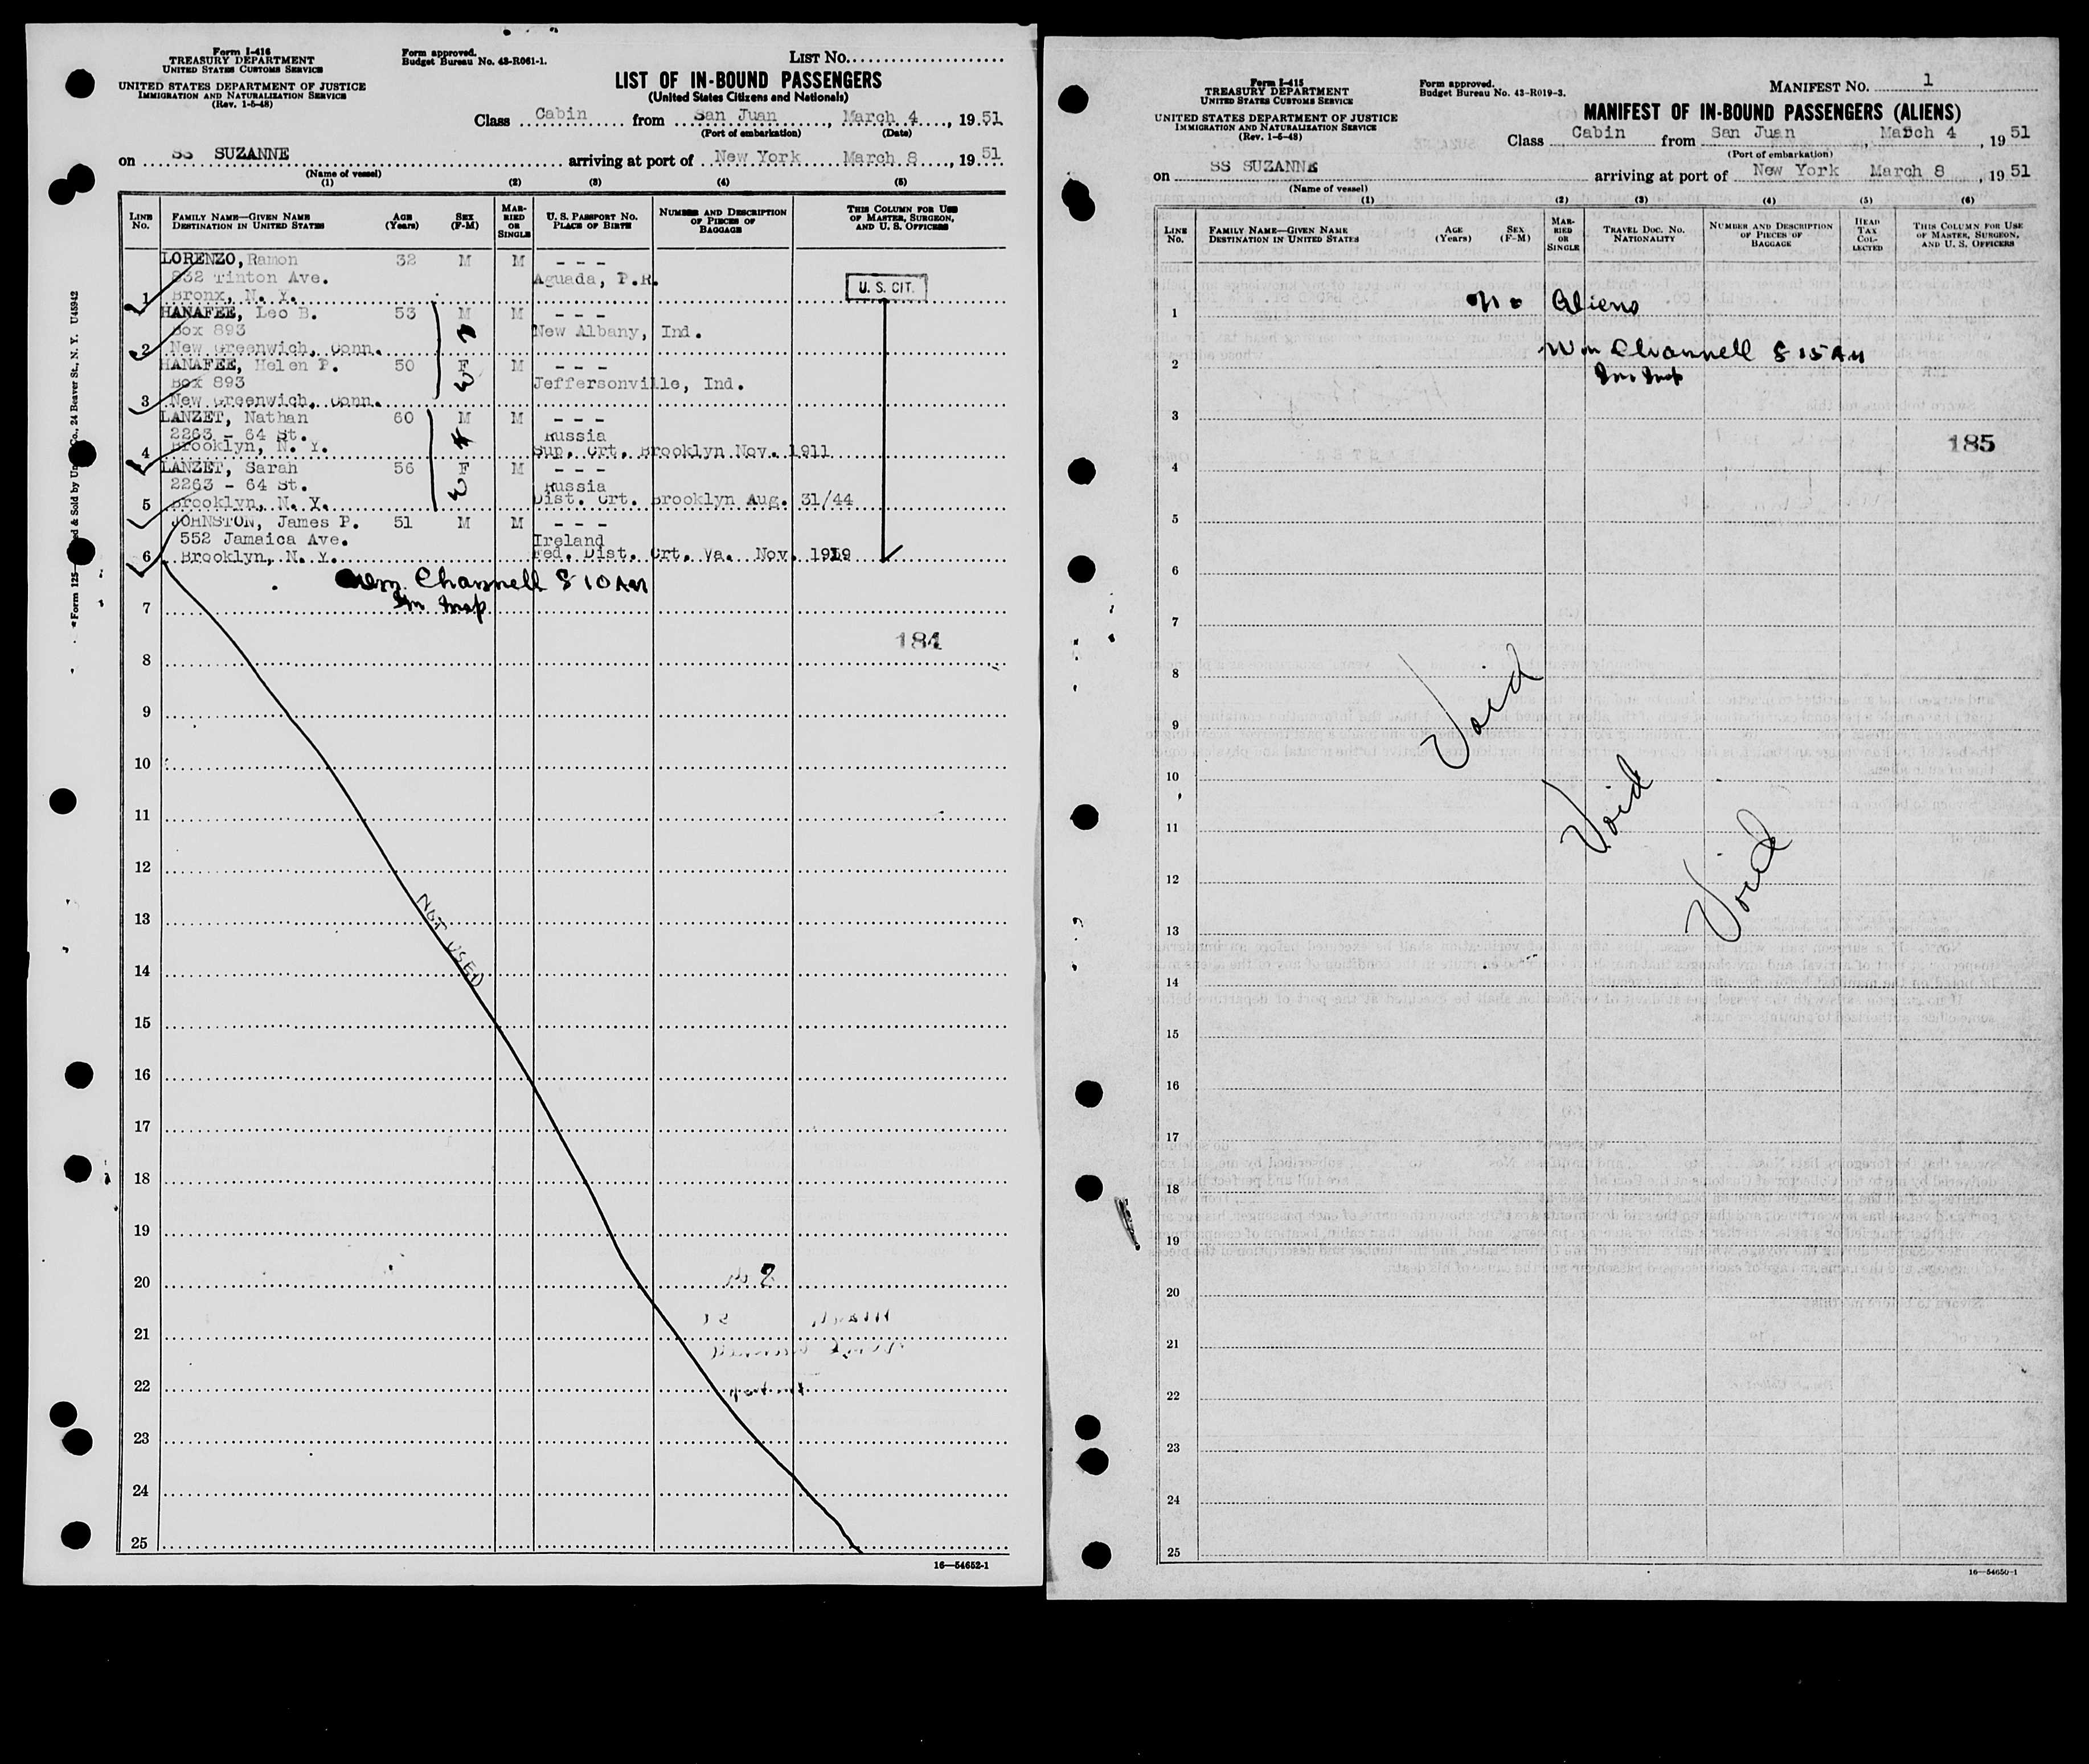 Form I-416
TREASURY DEPARTMENT
UNITED STATES CUSTOMS SERVICE
UNITED STATES DEPARTMENT OF JUSTICE
IMMIGRATION AND NATURALIZATION SERVICE
(Rev. 1-5-48)
Form approved.
Budget Bureau No. 43-R061-1.
LIST No.
LIST OF IN-BOUND PASSENGERS
(United States Citizens and Nationals)
Class Cabin from San Juan, March 4, 1951
(Port of embarkation) (Date)
on SS SUZANNE arriving at port of New York March 8, 1951
(Name of vessel)
(1) (2) (3) (4) (5)
LINE No. FAMILY NAME—GIVEN NAME DESTINATION IN UNITED STATES AGE (Years) SEX (F-M) MARRIED OR SINGLE U. S. PASSPORT NO. PLACE OF BIRTH NUMBER AND DESCRIPTION OF PIECES OF BAGGAGE THIS COLUMN FOR USE OF MASTER, SURGEON, AND U. S. OFFICERS
LORENZO, Ramon 32 M M - - -
832 Tinton Ave. Aguada, P.R. U. S. CIT.
1 Bronx, N. Y.
HANAFEE, Leo B. 53 M M - - -
Box 893 New Albany, Ind.
2 New Greenwich, Conn.
HANAFEE, Helen P. 50 F M - - -
Box 893 Jeffersonville, Ind.
3 New Greenwich, Conn.
LANZET, Nathan 60 M M - - -
2263 - 64 St. Russia
4 Brooklyn, N. Y. Sup. Crt. Brooklyn Nov. 1911
LANZET, Sarah 56 F M - - -
2263 - 64 St. Russia
5 Brooklyn, N. Y. Dist. Crt. Brooklyn Aug. 31/44
JOHNSTON, James P. 51 M M - - -
552 Jamaica Ave. Ireland
6 Brooklyn, N. Y. Fed. Dist. Crt. Va. Nov. 1919
Wm Channell 8 10 AM
Im Insp
7
184
8
9
10
11
12
13
NOT USED
14
15
16
17
18
19
20
21
22
23
24
25
16—54652-1
Form I-415
TREASURY DEPARTMENT
UNITED STATES CUSTOMS SERVICE
UNITED STATES DEPARTMENT OF JUSTICE
IMMIGRATION AND NATURALIZATION SERVICE
(Rev. 1-5-48)
Form approved.
Budget Bureau No. 43-R019-3.
MANIFEST No. 1
MANIFEST OF IN-BOUND PASSENGERS (ALIENS)
Class Cabin from San Juan, March 4, 1951
(Port of embarkation)
on SS SUZANNE arriving at port of New York March 8, 1951
(Name of vessel)
(1) (2) (3) (4) (5) (6)
LINE No. FAMILY NAME—GIVEN NAME DESTINATION IN UNITED STATES AGE (Years) SEX (F-M) MARRIED OR SINGLE TRAVEL DOC. NO. NATIONALITY NUMBER AND DESCRIPTION OF PIECES OF BAGGAGE HEAD TAX COLLECTED THIS COLUMN FOR USE OF MASTER, SURGEON, AND U. S. OFFICERS
1 No Aliens
Wm Channell 8 15 AM
2 Im Insp
3
185
4
5
6
7
8
Void
9
10
Void
11
12
Void
13
14
15
16
17
18
19
20
21
22
23
24
25
16—54650-1